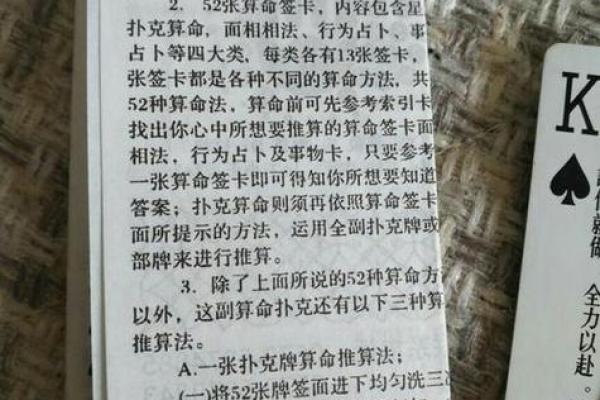 2. 52张算命签卡，内容包含星
扑克算命，面相相法、行为占卜、事
占卜等四大类，每类各有13张签卡，
张签卡都是各种不同的算命方法，共
52种算命法，算命前可先参考索引卡
找出你心中所想要推算的算命签卡面
相法，行为占卜及事物卡，只要参考
一张算命签卡即可得知你所想要知道
答案；扑克算命则须再依照算命签卡
面所提示的方法，运用全副扑克牌或
部牌来进行推算。
3. 除了上面所说的52种算命方
以外，这副算命扑克还有以下三种算
推算法。
A.一张扑克牌算命推算法；
(一)将52张牌签面进下均匀洗三
K
就做
全力以赴。